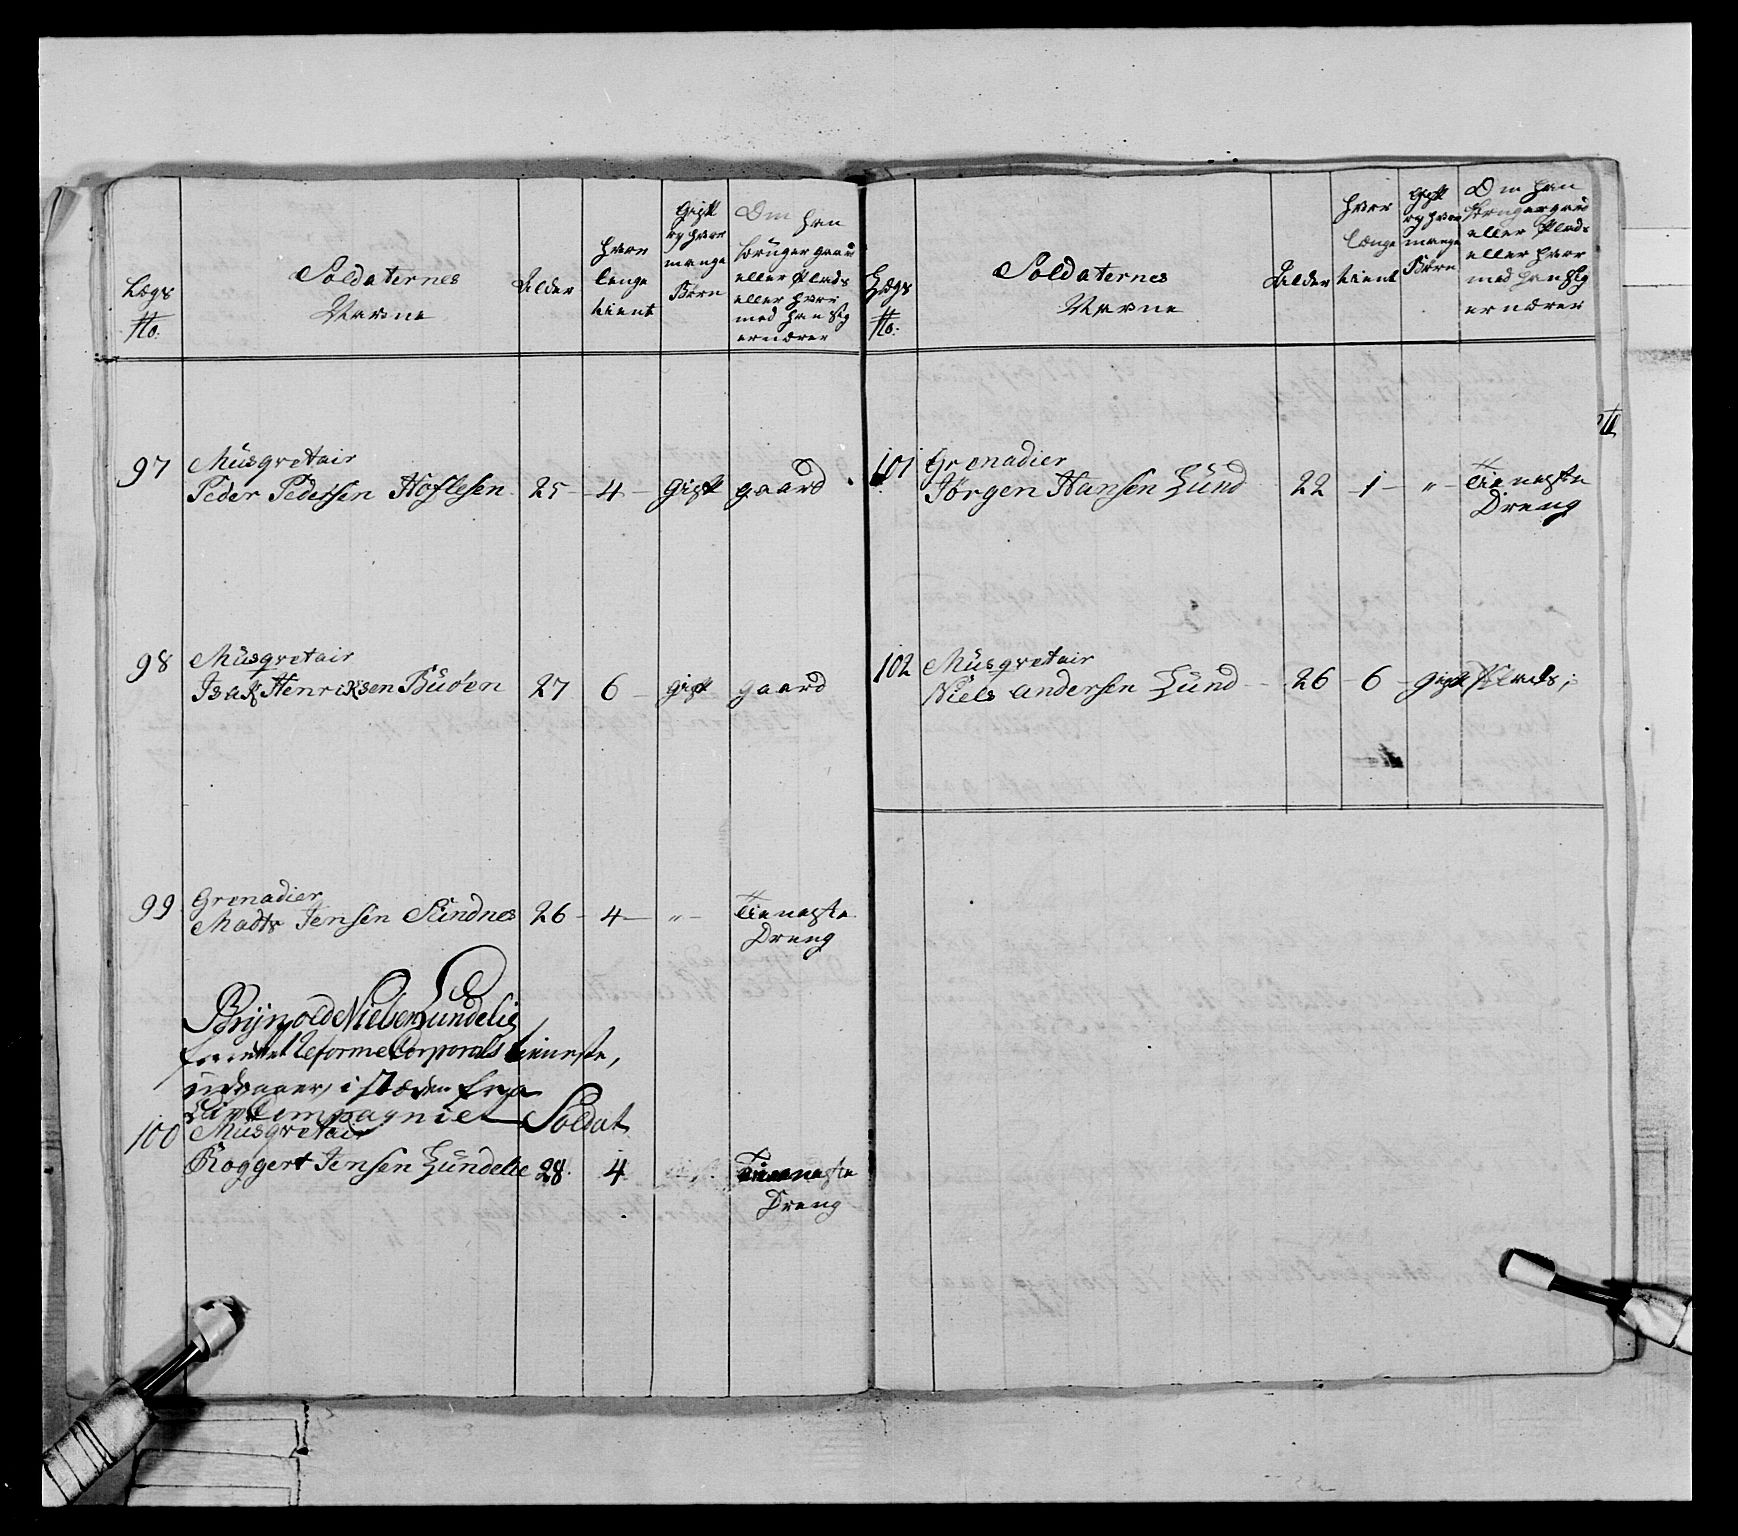 Lægs
No.
Soldaternes
Navne
Alder
hvor
lenge
tient
Gift
og hvor
mange
Børn
Om han
bruger gaard
eller Plads
eller hvor
med han sig
ernærer
97
Musqvetair
Peder Pedersen Høflesen 25 - 4 - Gift gaard
98
Musqvetair
Isak Henriksen Buöen 27 6 - gift gaard
99
Grenadier
Madts Jensen Sundnes 26 - 4 - " - Tieneste
Dreng
Brijnold Nielsen Lundelie
forrettet Reforme Corporals tieneste,
udgaaer, i stæden fra
Liv Compagniet Soldat
100
Musqvetair
Roggert Jensen Lundelie 28 4 Tieneste
Dreng
Lægs
No.
Soldaternes
Navne
Alder
hvor
længe
tient
Gift
og hvor
mange
Børn
Om han
bruger gaard
eller Plads
eller hvor
med han sig
ernærer
101
Grenadier
Jørgen Hansen Lund 22 - 1 - " - Tieneste
Dreng
102
Musqvetair
Niels Andersen Lund - 26 - 6 - gift Plads;